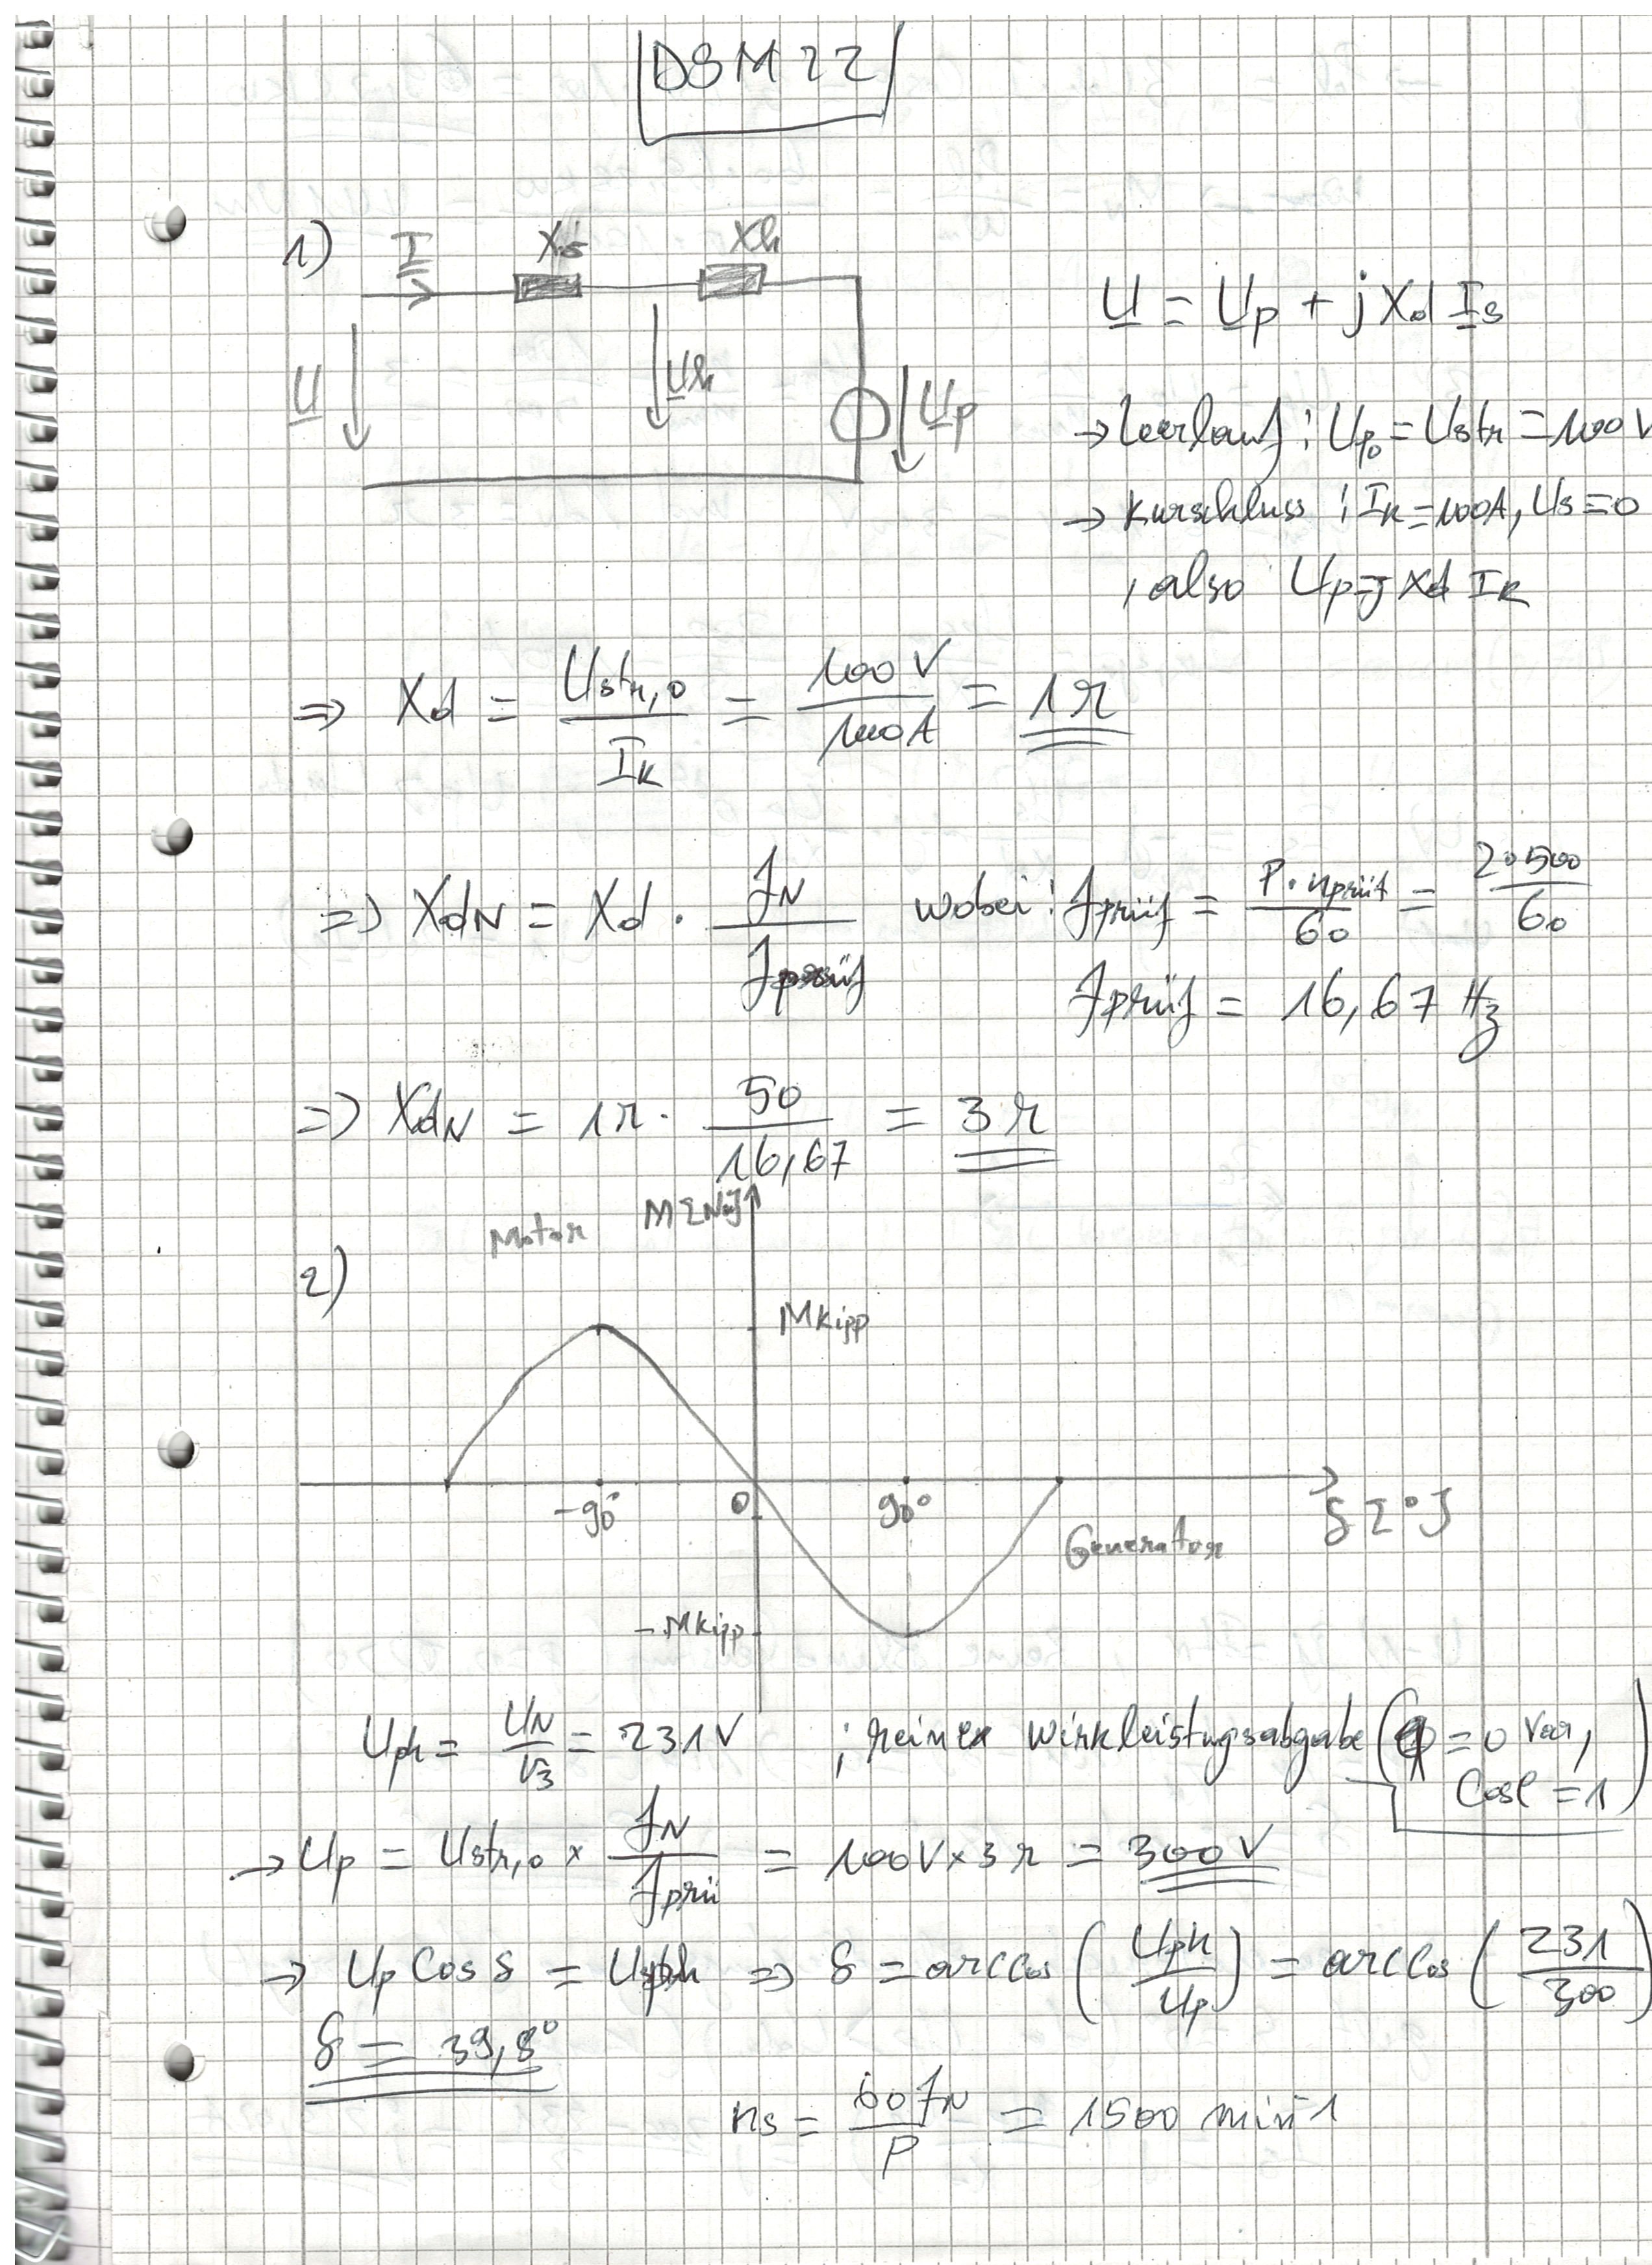 DSM 22
1)
I
Xσ
Xh
U
Uh
Up
U = Up + j Xd Is
→ Leerlauf : Up0 = Ustr = 100 V
→ Kurschluss : IK = 100A, Us = 0
, also Up = j Xd IK
⇒ Xd = Ustr,0 / IK = 100 V / 100A = 1 Ω
⇒ XdN = Xd · fN / fprüf wobei : fprüf = P · nprüf / 60 = 2·500 / 60
fprüf = 16,67 Hz
⇒ XdN = 1Ω · 50 / 16,67 = 3 Ω
2)
Motor
M[Nm]
MKipp
-90°
0
90°
δ[°]
Generator
-MKipp
Uph = UN / √3 = 231V ; reiner Wirkleistungsabgabe (Q = 0 Var,
Cosφ = 1)
→ Up = Ustr,0 × fN / fprü = 100V × 3 Ω = 300 V
→ Up Cos δ = Uph ⇒ δ = arccos (Uph / Up) = arccos (231 / 300)
δ = 39,8°
ns = 60 fN / P = 1500 min-1